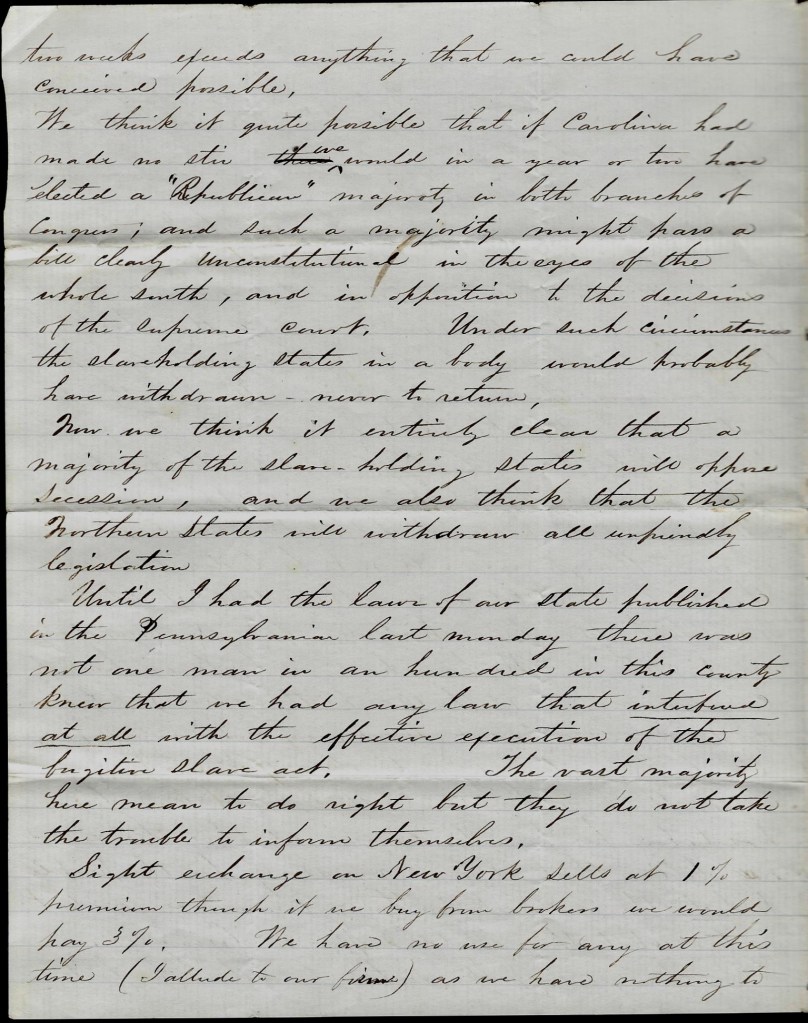 two weeks exceeds anything that we could have
conceived possible.
We think it quite possible that if Carolina had
made no stir we would in a year or two have
elected a "Republican" majority in both branches of
Congress; and such a majority might pass a
bill clearly unconstitutional in the eyes of the
whole south, and in opposition to the decisions
of the supreme court. Under such circumstances
the slaveholding states in a body would probably
have withdrawn - never to return,
Now we think it entirely clear that a
majority of the slave-holding states will oppose
secession, and we also think that the
Northern States will withdraw all unfriendly
legislation
Until I had the laws of our state published
in the Pennsylvanian last monday there was
not one man in an hundred in this county
knew that we had any law that interfered
at all with the effective execution of the
fugitive slave act. The vast majority
here mean to do right but they do not take
the trouble to inform themselves.
Sight exchange on New York sells at 1%
premium though if we buy from brokers we would
pay 3%. We have no use for any at this
time (I allude to our firm) as we have nothing to